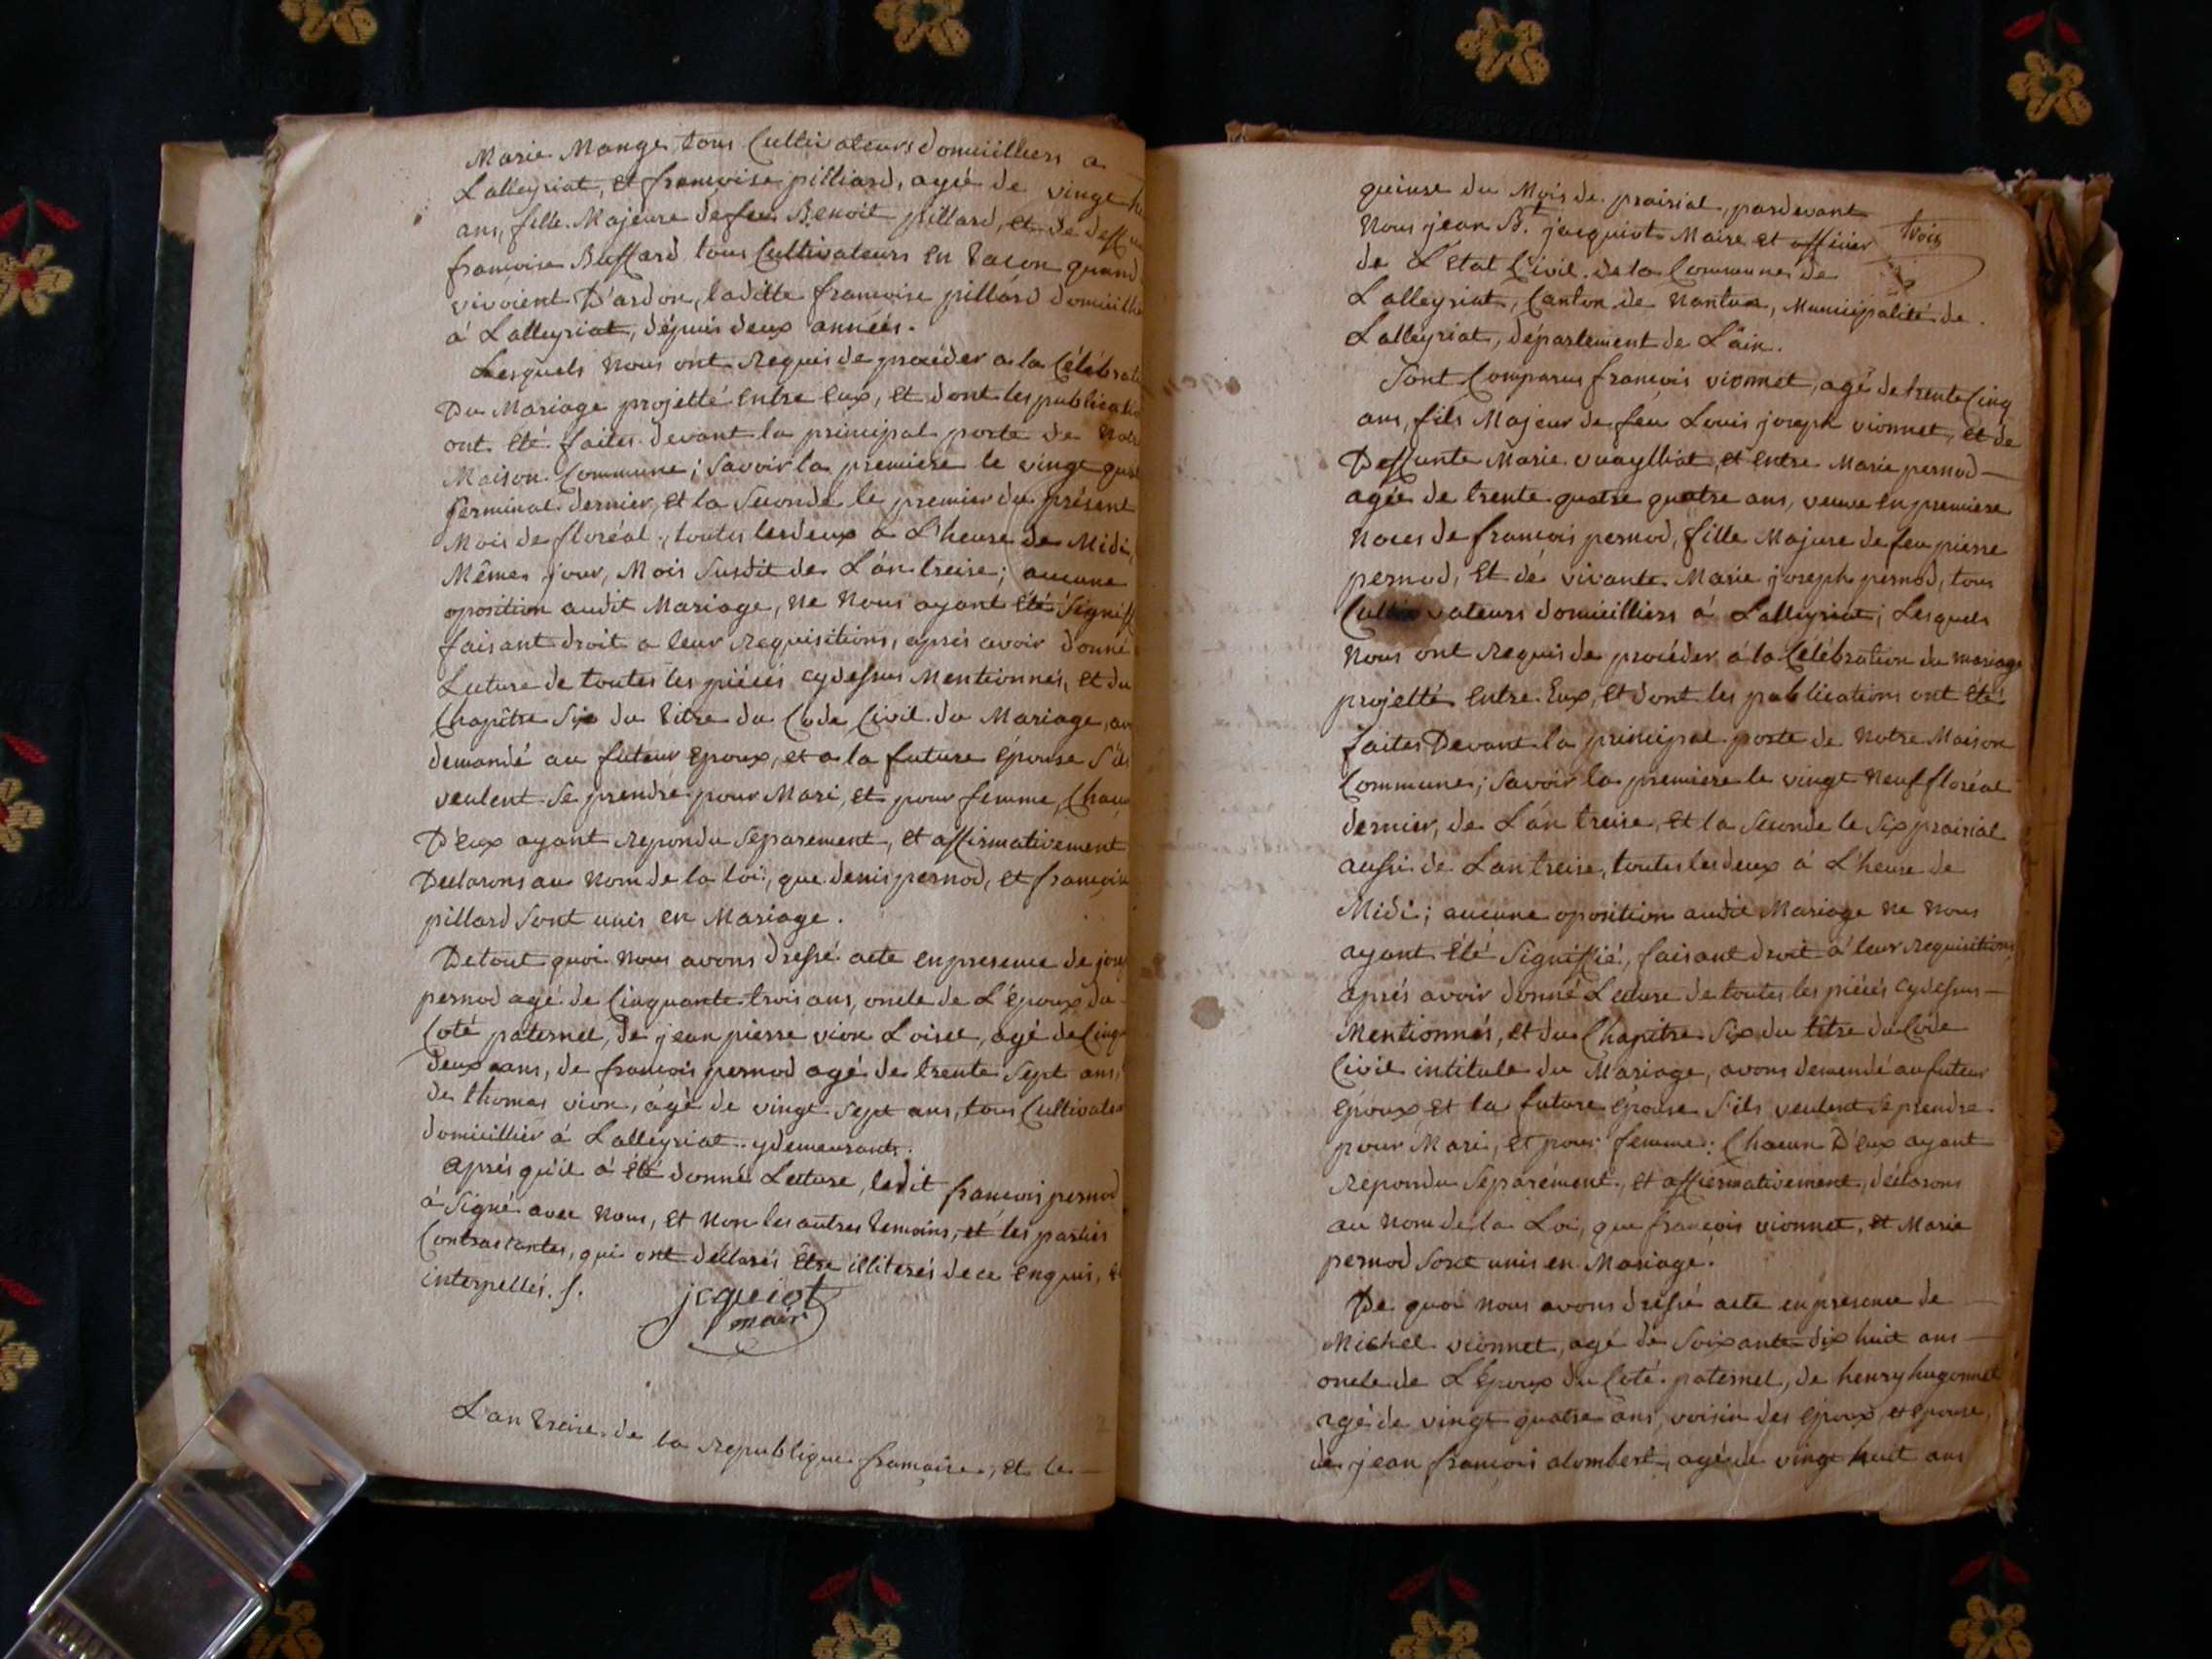 Marie Mange, tous Cultivateurs domicilliers a
Lalleyriat, et francoise pilliard, agée de vingt
ans, fille Majeure de feu Benoit pillard, et de deff
francoise Buffard tous Cultivateurs en quand
vivoient D'ardon, laditte francoise pillard domicilli
á Lalleyriat, dépuis deux années.
Lesquels nous ont Requis de procéder a la Célébrati
Du Mariage projetté entre eux, et dont les publicatio
ont été faites devant la principal porte de notr
Maison Commune; Savoir la premiere le vingt quat
Germinal dernier, et la Seconde le premier du présent
Mois de floréal, toutes les deux a L'heure de Midi,
Mêmes jour, Mois Susdit de L'án treise; aucune
oposition audit Mariage, ne nous ayant été Signiff
faisant droit a leur Requisitions, aprés avoir donné
Lecture de toutes les piéces cydessus Mentionnés, et du
Chapître Six du titre du Code Civil du Mariage, av
demandé au futeur Epoux, et a la future épouse S'il
veulent Se prendre pour Mari, et pour femme, Chacu
D'eux ayant Repondu Séparement, et affirmativement
Déclarons au nom de la loi, que denis pernod, et francoise
pillard Sont unis en Mariage.
De tout quoi nous avons dressé acte en presence de jose
pernod agé de Cinquante trois ans, oncle de L'époux du
Coté paternel, de jean pierre vion Loisel, agé de Cinq
deux ans, de francois pernod agé de trente Sept ans,
de thomas vion, ágé de vingt Sept ans, tous Cultivate
domicillier á Lalleyriat ydemeurants.
Aprés qu'il á été donné Lecture, ledit francois pernod
á Signé avec nous, et non les autres temoins, et les parties
Contractantes, qui ont déclarés être illiterés de ce enquis, et
interpellés. /.
jcquiot
mair
L'an treise de la Republique francaise, et le
quinse du Mois de prairial, pardevant
Nous jean Bt. jacquiot Maire et officier
trois
de L'état Civil de la Commune de
Lalleyriat, Canton de Nantua, Municipalité de
Lalleyriat, département de L'ain.
Sont Comparus francois vionnet, agé de trente Cinq
ans, fils Majeur de feu Louis joseph vionnet, et de
Deffunte Marie vuaylliat, et entre Marie pernod
agée de trente quatre quatre ans, veuve en premiere
noces de francois pernod, fille Majure de feu pierre
pernod, et de vivante Marie joseph pernod, tous
Cultivateurs domicilliers á Lalleyriat; Lesquels
Nous ont Requis de procéder á la Célébration du mariage
projetté entre Eux, et dont les publications ont été
faites Devant la principal porte de Notre Maison
Commune; Savoir la premiere le vingt neuf floréal
dernier, de L'án treise, et la Seconde le Six prairial
aussi de Lan treise, toutes les deux á L'heure de
Midi; aucune oposition audit Mariage ne nous
ayant été Signiffié, faisant droit á leur Requisitions
aprés avoir donné Lecture de toutes les piéces cydessus
Mentionnés, et du Chapître Six du titre du Code
Civil intitule du Mariage, avons demendé au futeur
époux et la future épouse S'ils veulent Se prendre
pour Mari, et pour femme; Chacun D'eux ayant
Repondu Séparément, et affiermativement, déclarons
au nom de la Loi, que francois vionnet, et Marie
pernod Sont unis en Mariage.
De quoi nous avons dressé acte en presence de
Michel vionnet, agé de Soixante dix huit ans
oncle de L'époux du Coté paternel, de henry hugonnet
agé de vingt quatre ans, voisin des époux, et epouse,
de jean francois alombert, agé de vingt huit ans